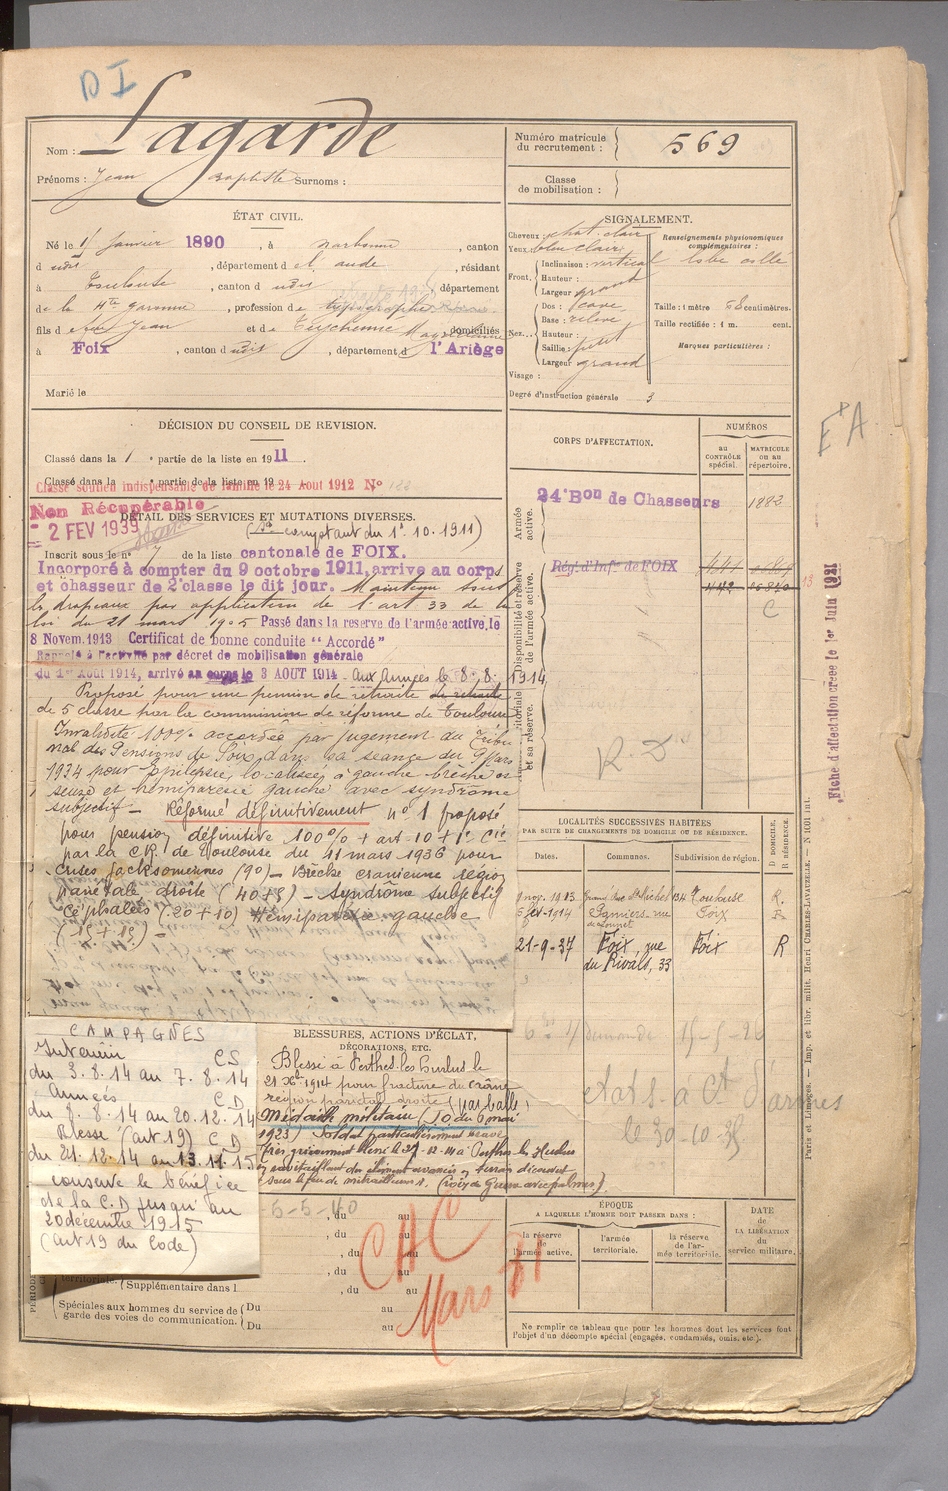 D I
Nom : Lagarde
Prénoms : Jean Baptiste Surnoms :
Numéro matricule du recrutement : 569
Classe de mobilisation :
ÉTAT CIVIL.
Né le 1er Janvier 1890, à Narbonne, canton
d udit, département de l'aude, résidant
à Toulouse, canton d udit, département
de la Hte Garonne, profession de typographe
fils de feu Jean et de domiciliés
à Foix, canton d udit, département d l'Ariège
Marié le
SIGNALEMENT.
Cheveux : chat. clair
Yeux bleu clair
Front. Inclinaison : vertical
Hauteur :
Largeur grand
Nez. Dos : cave
Base : relevé
Hauteur :
Saillie : petit
Largeur grand
Visage :
Renseignements physionomiques complémentaires :
lobe colle
Taille : 1 mètre 68 centimètres.
Taille rectifiée : 1 m. cent.
Marques particulières :
Degré d'instruction générale 3
DÉCISION DU CONSEIL DE REVISION.
Classé dans la 1e partie de la liste en 1911.
Classé dans la e partie de la liste en 19
Classé soutien indispensable de famille le 24 Août 1912 No
Non Récupérable
- 2 FEV 1939
DÉTAIL DES SERVICES ET MUTATIONS DIVERSES.
(Sce comptant du 1er.10.1911)
Inscrit sous le no 7 de la liste cantonale de FOIX.
Incorporé à compter du 9 octobre 1911, arrivé au corps
et chasseur de 2e classe le dit jour. Maintenu sous
les drapeaux par application de l'art 33 de la
loi du 21 mars 1905 Passé dans la reserve de l'armée active, le
8 Novem. 1913 Certificat de bonne conduite "Accordé"
Rappelé à l'activité par décret de mobilisation générale
du 1er Août 1914, arrivé au corps le 3 AOUT 1914. Aux Armées le 8.8.1914
Proposé pour une pension de retraite de retraite
de 5 classe par la commission de réforme de Toulouse
Invalidité 100% accordée par jugement du Tribu
nal des Pensions de Foix dans sa séance du 9 Mars
1934 pour épilepsie, localisée à gauche brèche os
seuze et hémiparésie gauche avec syndrôme
subjectif - Réformé définitivement no 1 proposé
pour pension définitive 100% + art. 10 +
par la CR. de Toulouse du 11 mars 1936 pour
Crises Jacksoniennes (90) - Brèche cranienne région
pariétale droite (40+5) - syndrôme subjectif
Céphalées (20+10) Hémiparésie gauche
(15+15) -
CORPS D'AFFECTATION.
NUMÉROS
AU CONTRÔLE spécial.
MATRICULE OU AU répertoire.
Armée active.
24e Bon de Chasseurs 1882
Disponibilité et réserve de l'armée active.
Rég. d'Infie de FOIX
C
et sa réserve.
Fiche d'affectation créée le 1er Juin 1921
LOCALITÉS SUCCESSIVES HABITÉES
PAR SUITE DE CHANGEMENTS DE DOMICILE OU DE RÉSIDENCE.
Dates. Communes. Subdivision de région. D DOMICILE. R RÉSIDENCE.
9 nov. 1913 Toulouse R.
5 fév. 1914 Pamiers rue Foix R
21-9-37 Foix, rue du Rivals, 33 Foix R
CAMPAGNES
Intérieur CS
du 3.8.14 au 7.8.14
Armées CD
du 8.8.14 au 20.12.14
Blessé (art 19) CD
du 21.12.14 au 13.11.15
conserve le bénéfice
de la C.D jusqu'au
20 décembre 1915
(art 19 du Code)
BLESSURES, ACTIONS D'ÉCLAT,
DÉCORATIONS, ETC.
Blessé à Perthes les Hurlus le
21 Xbre 1914 pour fracture du crâne
région pariétale droite (par balle)
Médaille militaire (JO du 6 mai
1923) Soldat particulièrement brave
très grièvement blessé le à Perthes les Hurlus
en ravitaillant des élément avancés en terrain découvert
sous le feu de mitrailleuses. Croix de Guerre avec palmes)
6-5-40
, du au
, du au
, du au
, du au
CAC
Mars
territoriale. Supplémentaire dans l
Spéciales aux hommes du service de garde des voies de communication. Du au
Du au
ÉPOQUE
A LAQUELLE L'HOMME DOIT PASSER DANS :
la réserve de l'armée active. l'armée territoriale. la réserve de l'armée territoriale.
DATE DE LA LIBÉRATION du service militaire.
Ne remplir ce tableau que pour les hommes dont les services font
l'objet d'un décompte spécial (engagés, condamnés, omis, etc.).
Paris et Limoges. — Imp. et libr. milit. Henri CHARLES-LAVAUZELLE. — N 1001 int.